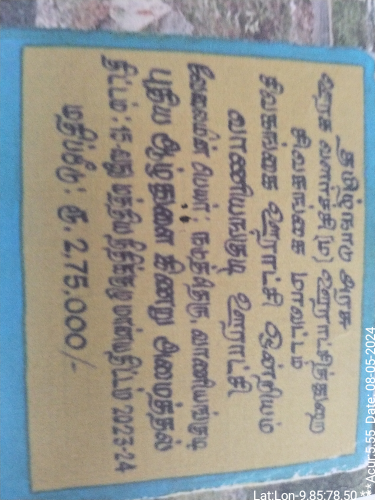 தமிழ்நாடு அரசு
ஊரக வளர்ச்சி(ம) ஊராட்சித்துறை
சிவகங்கை மாவட்டம்
சிவகங்கை ஊராட்சி ஒன்றியம்
வாணியங்குடி ஊராட்சி
வேலையின் பெயர்: வாணியங்குடி
புதிய ஆழ்குளை கிணறு அமைத்தல்
திட்டம்: 15-வது மத்திய நிதிக்குழு மான்யதிட்டம் 2023-24
மதிப்பீடு: ரூ. 2,75,000/-
Lat:Lon-9.85:78.50 ***Acur:5.55 Date: 08-05-2024